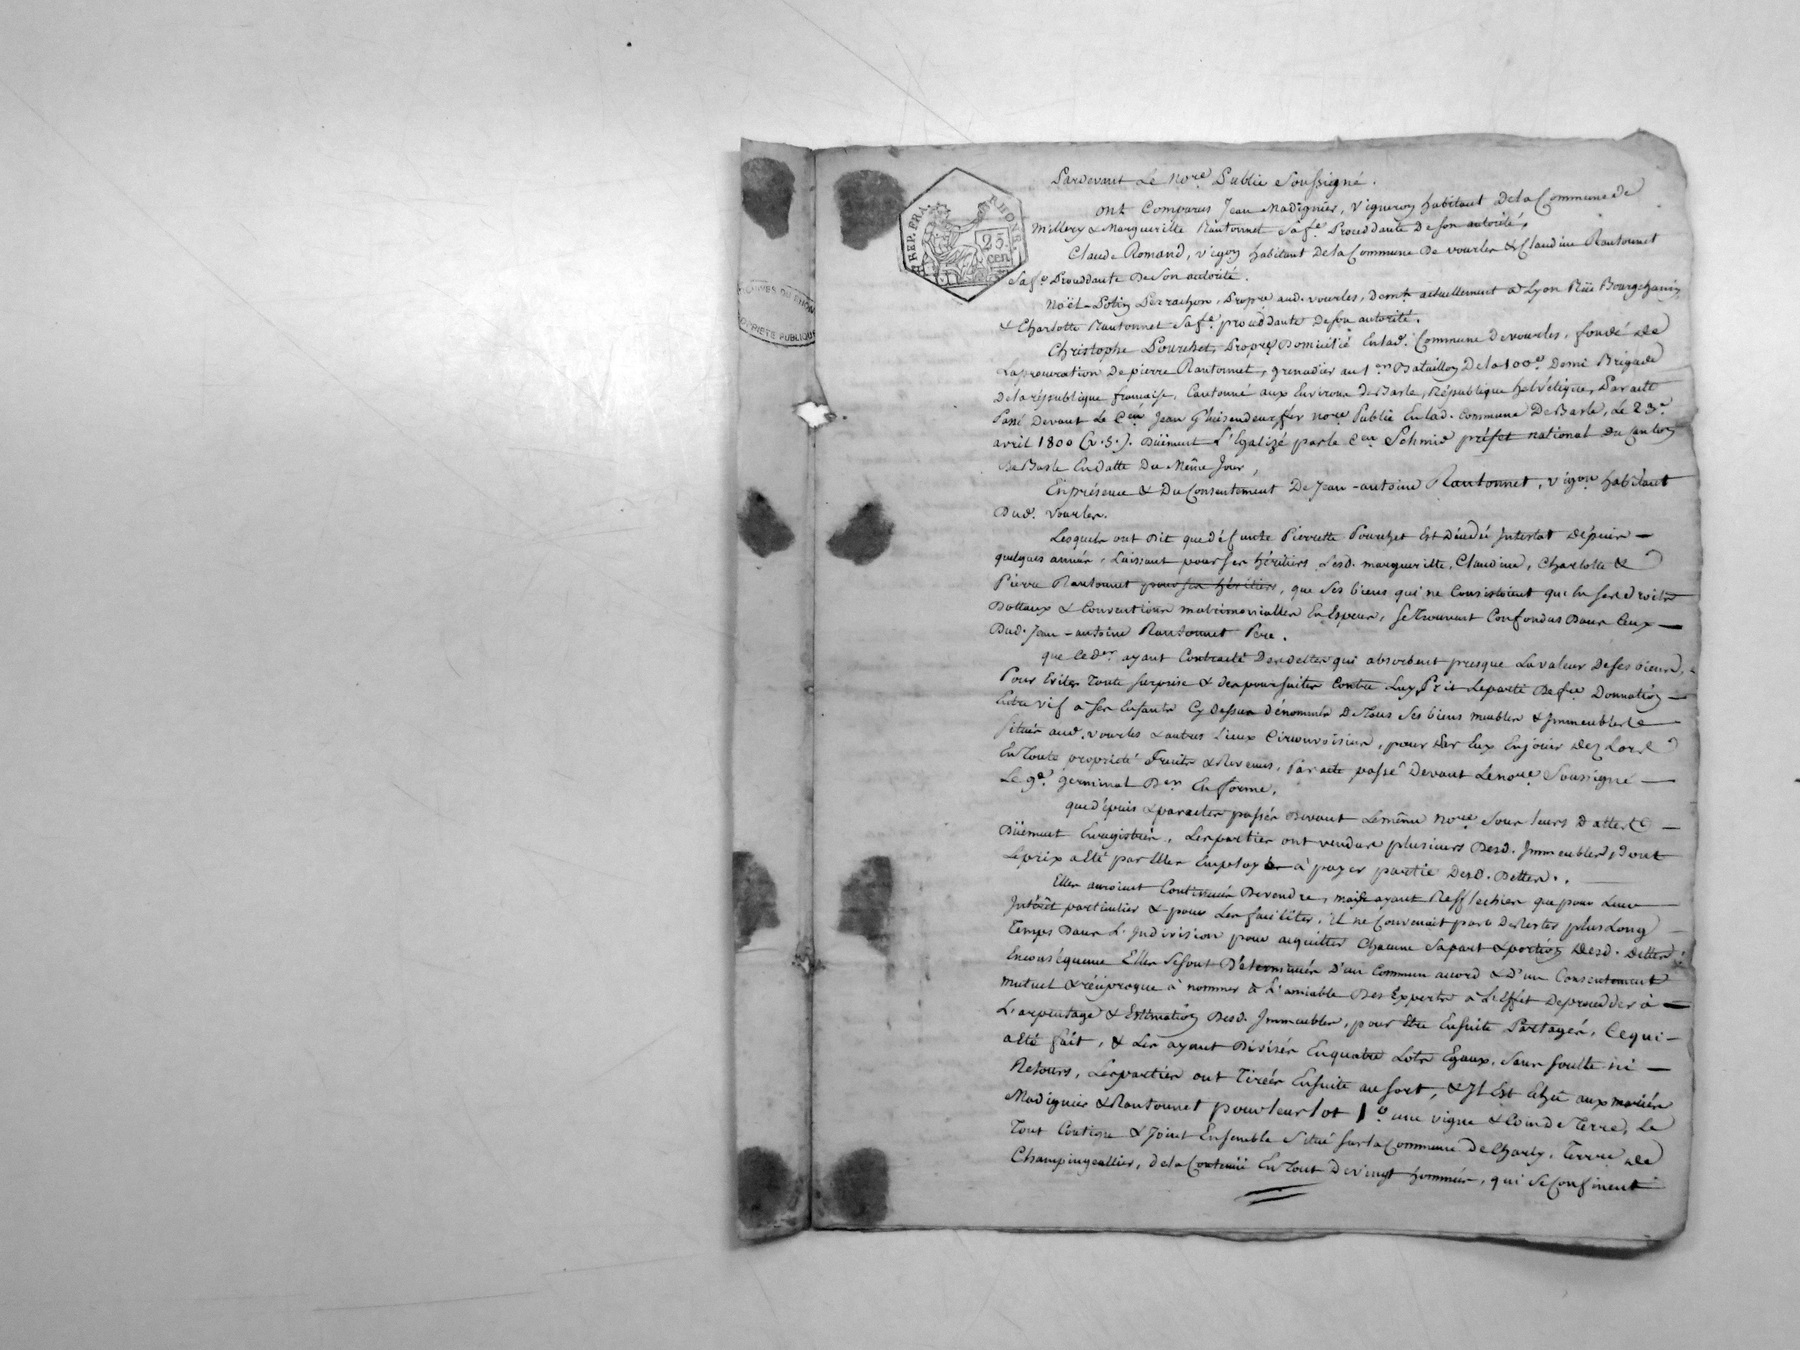 REP. FRA. RHONE.
25 cen
ARCHIVES DU RHÔNE
PROPRIÉTÉ PUBLIQUE
Pardevant Le Nore. Public Soussigné.
ont Comparus Jean Madignier, Vigneron habitant dela Commune de
Millery & Marguerite Rantonnet Sa fe. Procédante De son autorité,
Claude Romand, vigon habitant dela Commune De vourles & Claudine Rantonnet
Sa fe. Procédante De son autorité.
Noël-Potin Perrachon, Propre. aud. vourles, demt. actuellement à Lyon Rüe Bourgchanin
& Charlotte Rantonnet Sa fe. procédante De son autorité.
Christophe Pourchet, Propre Domicilié En lad. Commune de vourles, fondé de
La procuration De pierre Rantonnet, grenadier au 1er Bataillon De la 100e Demi Brigade
De la république française, Cantonné aux Environs de Basle, République helvétique, Par acte
Passé Devant Le Cen Jean Nore Public En lad. Commune De Basle, Le 23e
avril 1800 (v. s.). Düement L'Egalizé par le Cen Schmid préfet national Du Canton
De Basle En datte Du Même Jour,
En présence & Du Consentement De Jean-antoine Rantonnet, vigon habitant
Dud. vourles.
Lesquels ont Dit que défunte Pierrette Pourchet Est Décédé Intestat Dépuis
quelques années, Laissant pour ses héritiers, Lesd. marguerite, Claudine, Charlotte &
Pierre Rantonnet pour ses héritiers, que Ses biens qui ne Consistoient qu'En ses droits
Dottaux & Conventions matrimonialles En Espèces, se Trouvant Confondus Dans Ceux
Dud. Jean-antoine Rantonnet Père.
que Ce der ayant Contracté Des dettes qui absorbent presque La valeur De ses biens,
Pour Eviter Toute surprise & des poursuites Contre Luy, Prit Le parti De fre Donnation
Entre vif à Ses Enfants Cy dessus dénommés De Tous Ses biens meubles & Immeubles
situés aud. vourles & autres Lieux Circonvoisins, pour Par Eux En jouir Dez Lors
En Toute propriété Fruits & Revenus, Par acte passé Devant Le nore Soussigné
Le 9e. germinal Der En forme.
que dépuis & par actes passés Devant Le même Nore Sous leurs Dattes
Düement Enregistrés, Les parties ont vendus plusieurs Desd. Immeubles, Dont
Le prix a Eté par Elles Employé à payer partie Desd. Dettes.
Elles auroient Continués De vendre, mais ayant Reffléchies que pour Leur
Intérêt particulier & pour Les faciliter, il ne Convenoit pas De Rester plus Long
Temps Dans L'Indivision pour acquitter Chacune Sa part & portion Desd. Dettes
En conséquence Elles Se sont Déterminées D'un Commun accord & D'un Consentement
mutuel & réciproque à nommer à L'amiable Des Experts à L'Effet De procéder à
L'arpentage & Estimation Desd. Immeubles, pour Etre Ensuite Partagés, Ce qui
a Eté fait, & Les ayant Divisés En quatre Lots Egaux, Sans soulte ni
Retours, Les parties ont Tirées Ensuite au sort, & Il Est Echû aux mariés
Madignier & Rantonnet pour leur lot 1º une vigne & Coin de Terre, Le
Tout Contigu & Joint Ensemble Situé sur la Commune De Charly, Terroir De
de la Contenüe En Tout De vingt hommées, qui Se Confinent